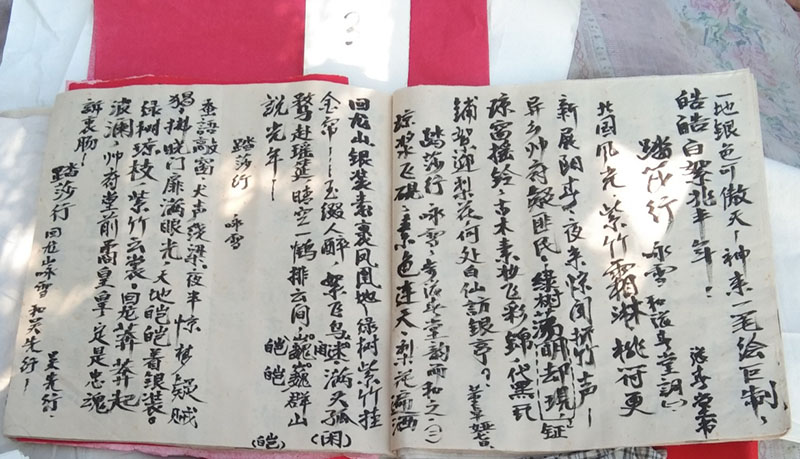 一地银色可傲天—神来一笔绘巨制,
皓皓白絮兆丰年!
踏莎行 咏雪 和张寿堂词
北国风光,紫竹霜淋桃符更
新展阳亭,夜来惊闻折竹声—
帅府疑匪民,绿树荫明却现钲
琼宫摇铃,古木素妆飞彩锦代黑瓦
铺贺迎梨花何处白仙訪银亭。
踏莎行 咏雪:步张寿堂韵而和之(二)
琼浆飞砚:素色连天,梨花洒
回龙山银装素裹凤凰地绿树紫竹挂
金帘—玉缀人醉 絮飞鸟眯满天孤(闲)
鹜赴瑶筵,晴空一鹤排云间,巍巍群山
皑皑
(皑)
说光年—
踏莎行 咏雪
語敲窗,犬声绕梁,夜半惊梦疑贼
猖,拂晓门扉满眼光,天地皑皑着银装。
绿树琼枝,紫竹云裳,回龙莽莽起
波澜,帅府堂前裔皇皇,定是忠魂
訴衷肠—
踏莎行 回龙山咏雪 和吴先行—
吴先行.